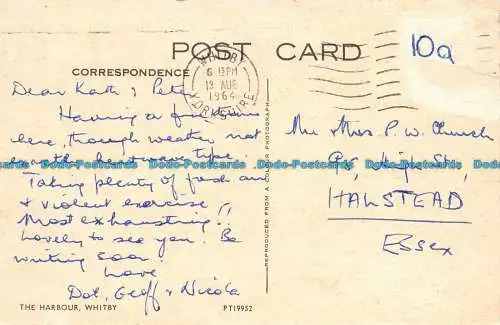 POST CARD
10a
CORRESPONDENCE
WHITBY
6 15 PM
13 AUG
1964
YORKSHIRE
Dear Kath & Peter
Having a fine time
here, though weather not
quite heatwave type.
Taking plenty of fresh air
& violent exercise
Most exhausting!!
Lovely to see you. Be
writing soon.
Love
Dot, Geoff & Nicola
Mr Mrs. P. W. Church
High St,
HALSTEAD
Essex
REPRODUCED FROM A COLOUR PHOTOGRAPH
THE HARBOUR, WHITBY
PT19952
Dodo-Postcards